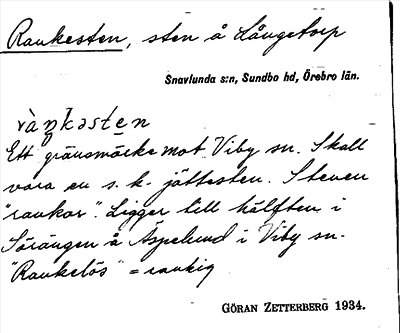 Rankesten, sten å Långetorp
Snavlunda s:n, Sundbo hd, Örebro län.
ràŋkəsten
Ett gränsmärke mot Viby sn. Skall
vara en s. k. jättesten. Stenen
"rankar". Ligger till hälften i
Sörängen å Äspelund i Viby sn.
"Rankelös" = rankig
GÖRAN ZETTERBERG 1934.